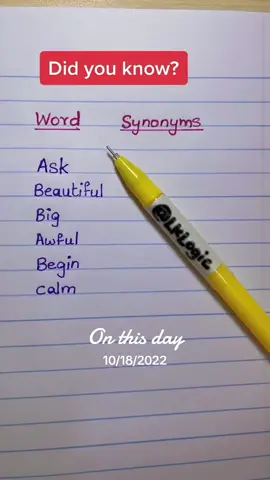 Did you know?
Word Synonyms
Ask
Beautiful
Big
Awful
Begin
calm
@LKLogic
On this day
10/18/2022